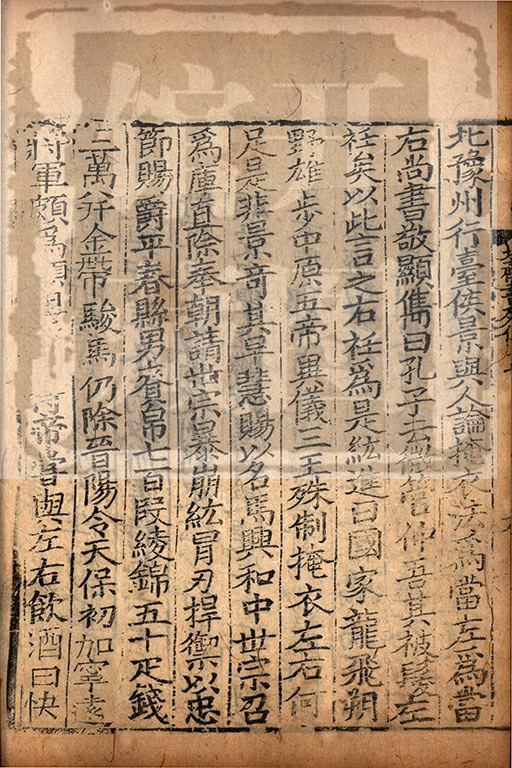 北豫州行臺侯景與人論掩衣法爲當左爲當
右尚書敬顯儁曰孔子云微管仲吾其被髮左
衽矣以此言之右衽爲是紘進曰國家龍飛朔
野雄步中原五帝異儀三王殊制掩衣左右何
足是非景奇其早慧賜以名馬興和中世宗召
爲庫直除奉朝請世宗暴崩紘冒刃捍禦以忠
節賜爵平春縣男賚帛七百段綾錦五十疋錢
三萬幷金帶駿馬仍除晉陽令天保初加寧遠
將軍頗爲顯 帝嘗與左右飮酒曰快